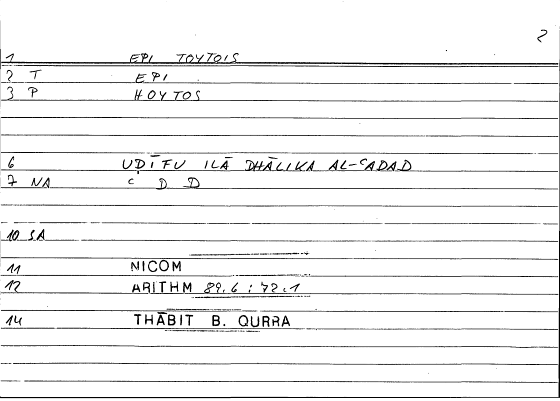 2
1 EPI TOYTOIS
2 T EPI
3 P HOYTOS
6 UḌĪFU ILĀ DHĀLIKA AL-ʿADAD
7 NA ʿ D D
10 SA
11 NICOM
12 ARITHM 89.6 : 72.1
14 THĀBIT B. QURRA